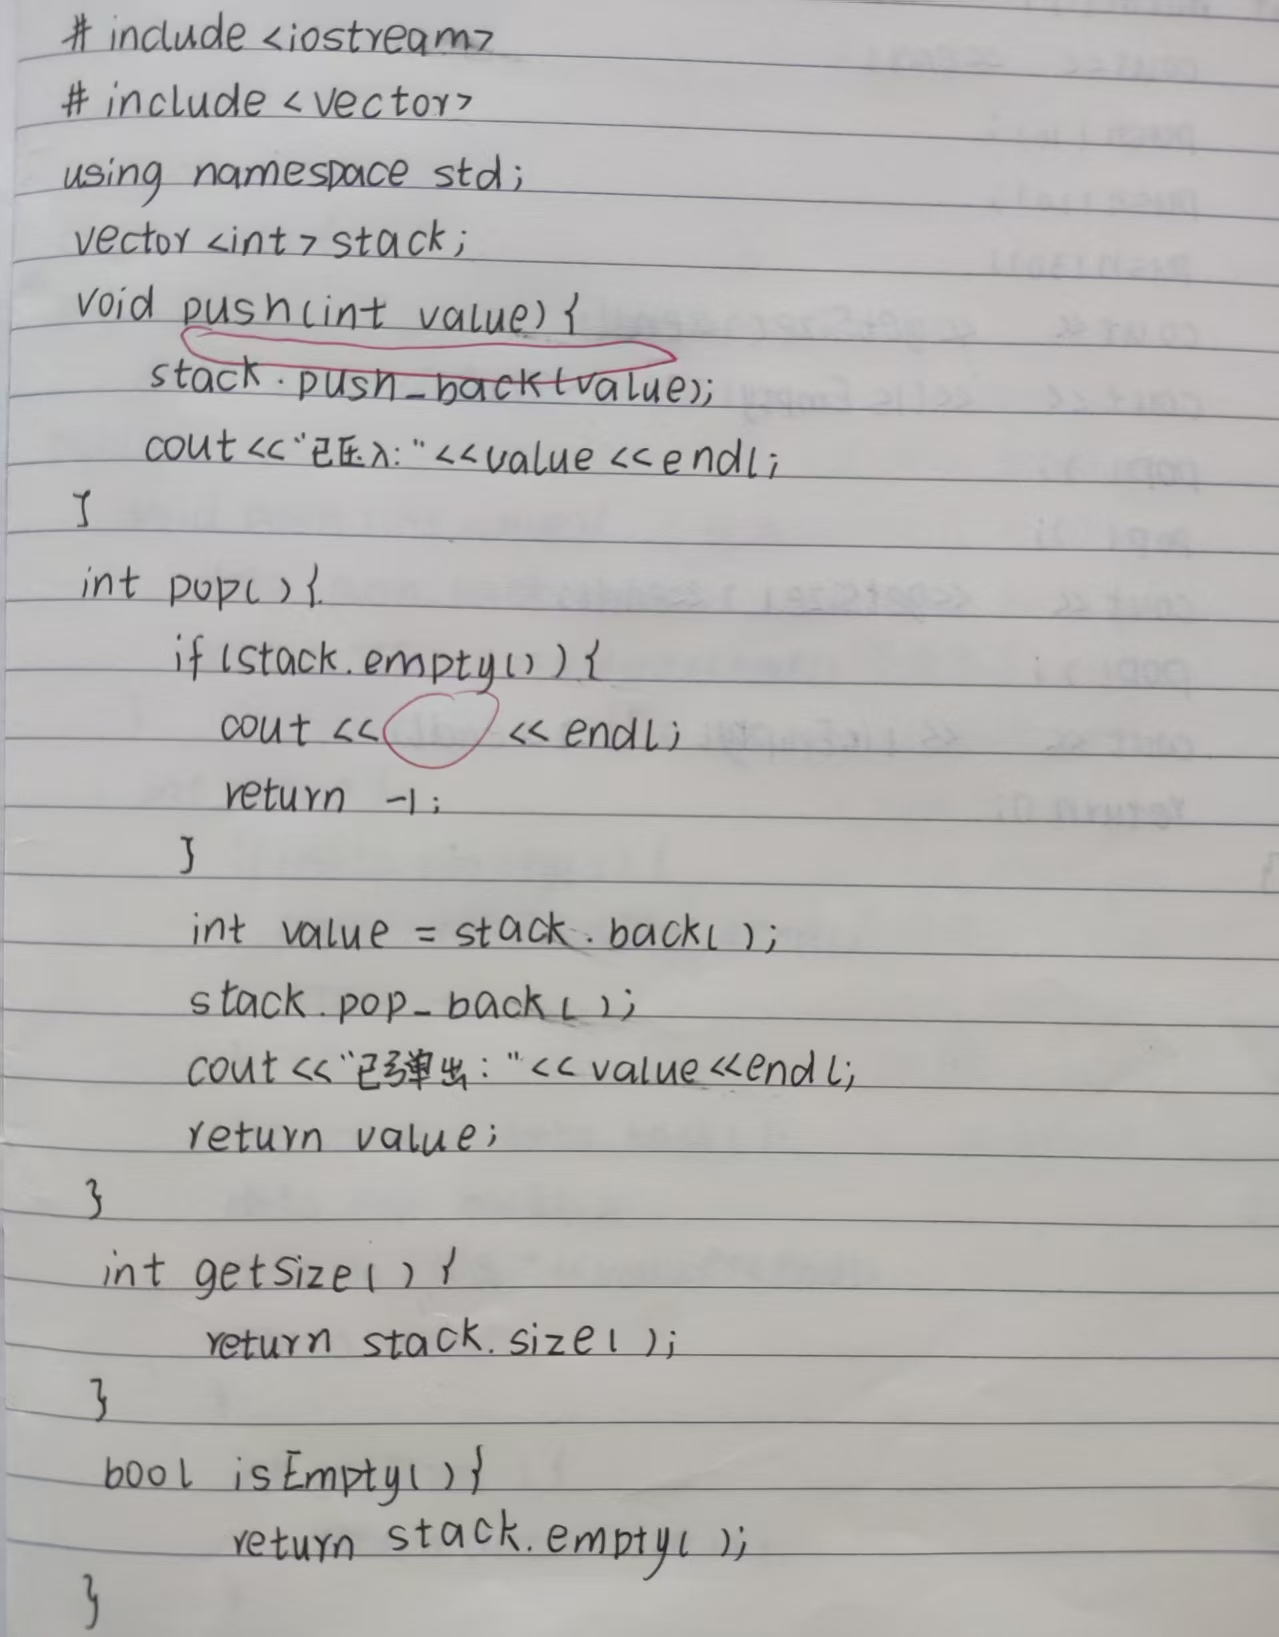 # include <iostream>
# include <vector>
using namespace std;
vector <int> stack;
void push(int value) {
stack.push_back(value);
cout << "已压入:" << value << endl;
}
int pop() {
if (stack.empty()) {
cout << << endl;
return -1;
}
int value = stack.back();
stack.pop_back();
cout << "已弹出:" << value << endl;
return value;
}
int getSize() {
return stack.size();
}
bool isEmpty() {
return stack.empty();
}